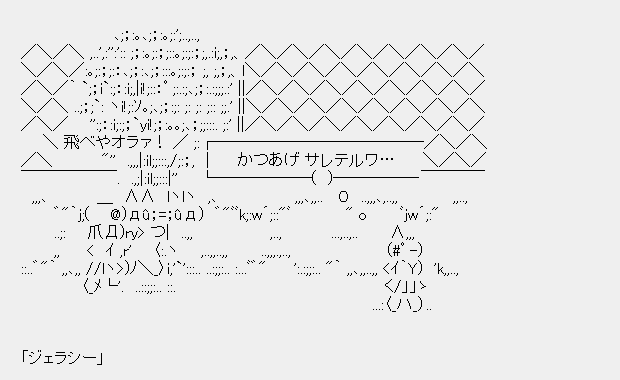 飛べやオラァ！
かつあげ サレテルワ…
「ジェラシー」